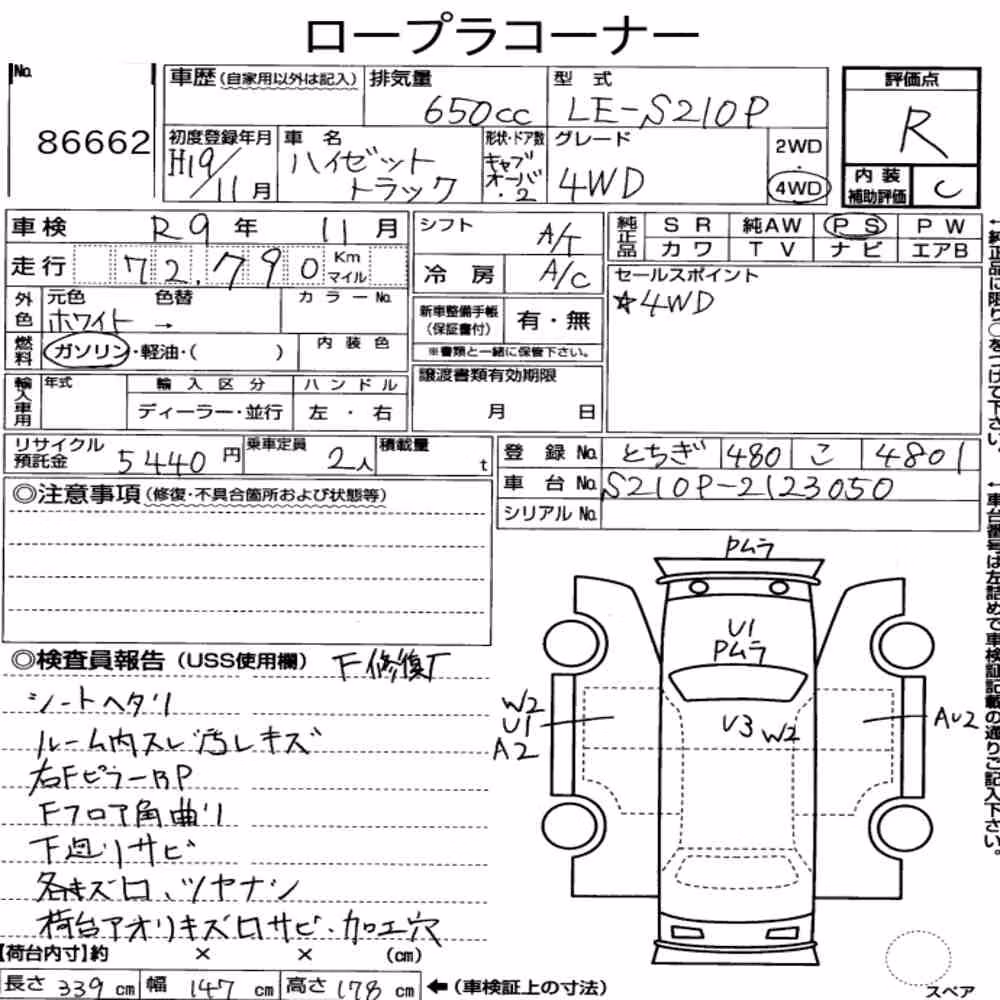 ロープラコーナー
No. 86662
車歴(自家用以外は記入)
排気量 650cc
型式 LE-S210P
評価点 R
内装補助評価 C
初度登録年月 H19/11月
車名 ハイゼットトラック
形状・ドア数 キャブオーバ・2
グレード 4WD
2WD・4WD
車検 R9年 11月
走行 72,790 Km マイル
シフト A/T
冷房 A/C
純正品 SR 純AW PS PW
カワ TV ナビ エアB
セールスポイント
☆4WD
外色 元色 ホワイト 色替 → カラーNo.
燃料 ガソリン・軽油・( ) 内装色
新車整備手帳(保証書付) 有・無
※書類と一緒に保管下さい。
輸入車用 年式 輸入区分 ハンドル
ディーラー・並行 左・右
譲渡書類有効期限
月 日
リサイクル預託金 5440円
乗車定員 2人
積載量 t
登録No. とちぎ 480 こ 4801
車台No. S210P-2123050
シリアルNo.
◎注意事項(修復・不具合箇所および状態等)
◎検査員報告(USS使用欄) F修復
シートヘタリ
ルーム内スレ汚レキズ
右FピラーBP
Fフロア角曲リ
下廻リサビ
各キズロ、ツヤナシ
荷台アオリキズロサビ・加工穴
【荷台内寸】約 × × (cm)
長さ 339 cm 幅 147 cm 高さ 178 cm ←(車検証上の寸法)
Pムラ
U1
Pムラ
U3 W2
W2
U1
A2
AU2
スペア
←純正品に限り○をつけて下さい。
←車台番号は左詰めで車検証記載の通りご記入下さい。